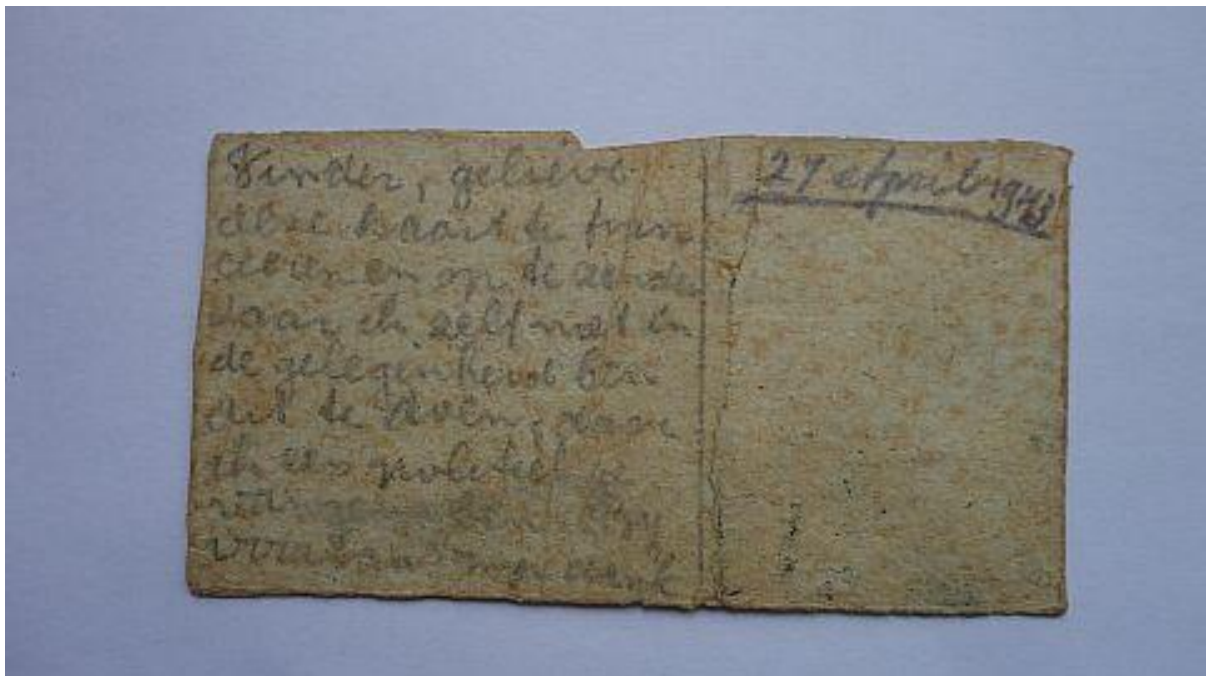 Vinder, gelieve
deze kaart te fran
ceren en op te zenden
daar ik zelf niet in
de gelegenheid ben
dit te doen, daar
ik een politiek ge
vangene ben
vooraan mijn dank
27 April 1943